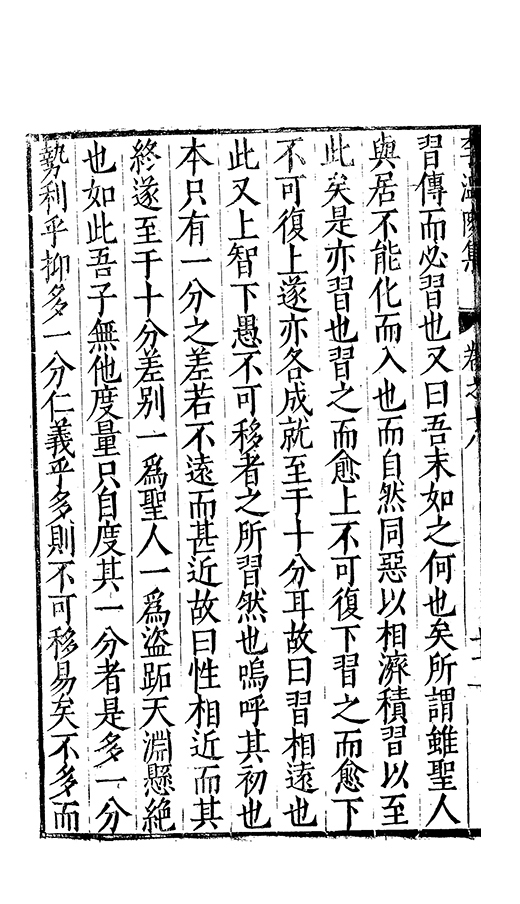 李溫陵集 卷之十八
習傳而必習也又曰吾末如之何也矣所謂雖聖人
與居不能化而入也而自然同惡以相濟積習以至
此矣是亦習也習之而愈上不可復下習之而愈下
不可復上遂亦各成就至于十分耳故曰習相遠也
此又上智下愚不可移者之所習然也嗚呼其初也
本只有一分之差若不遠而甚近故曰性相近而其
終遂至于十分差别一爲聖人一爲盜跖天淵懸絶
也如此吾子無他度量只自度其一分者是多一分
勢利乎抑多一分仁義乎多則不可移易矣不多而